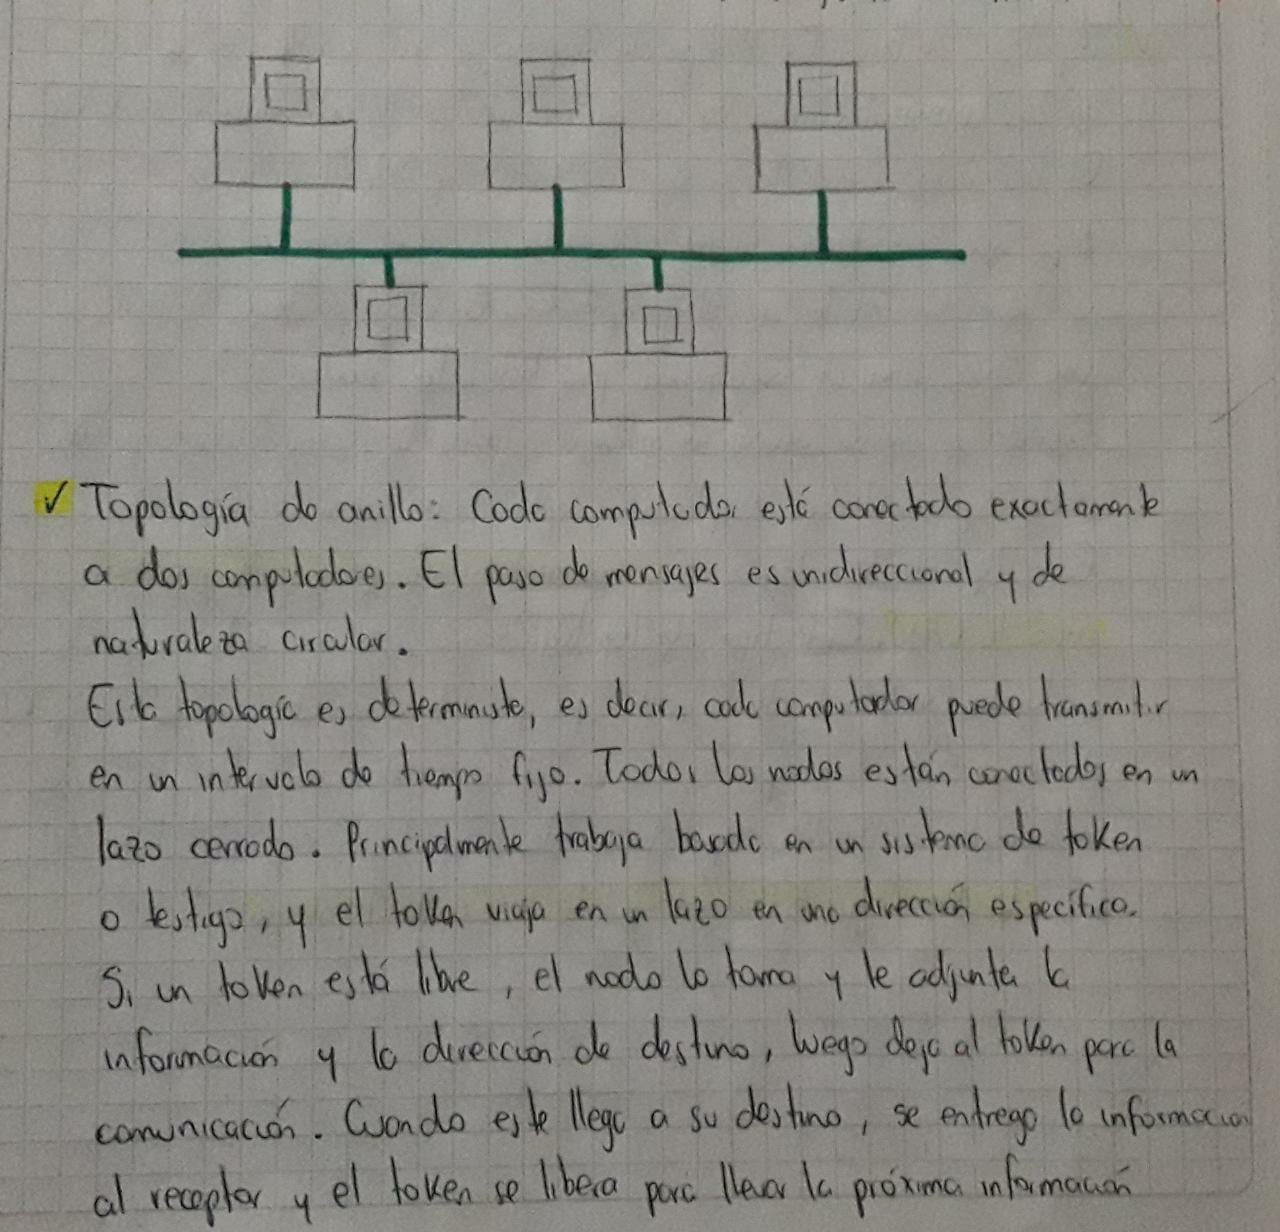 ✓ Topología de anillo: Cada computador está conectado exactamente
a dos computadores. El paso de mensajes es unidireccional y de
naturaleza circular.
Esta topología es determinista, es decir, cada computador puede transmitir
en un intervalo de tiempo fijo. Todos los nodos están conectados en un
lazo cerrado. Principalmente trabaja basado en un sistema de token
o testigo, y el token viaja en un lazo en una dirección específica.
Si un token está libre, el nodo lo toma y le adjunta la
información y la dirección de destino, luego deja al token para la
comunicación. Cuando este llega a su destino, se entrega la información
al receptor y el token se libera para llevar la próxima información